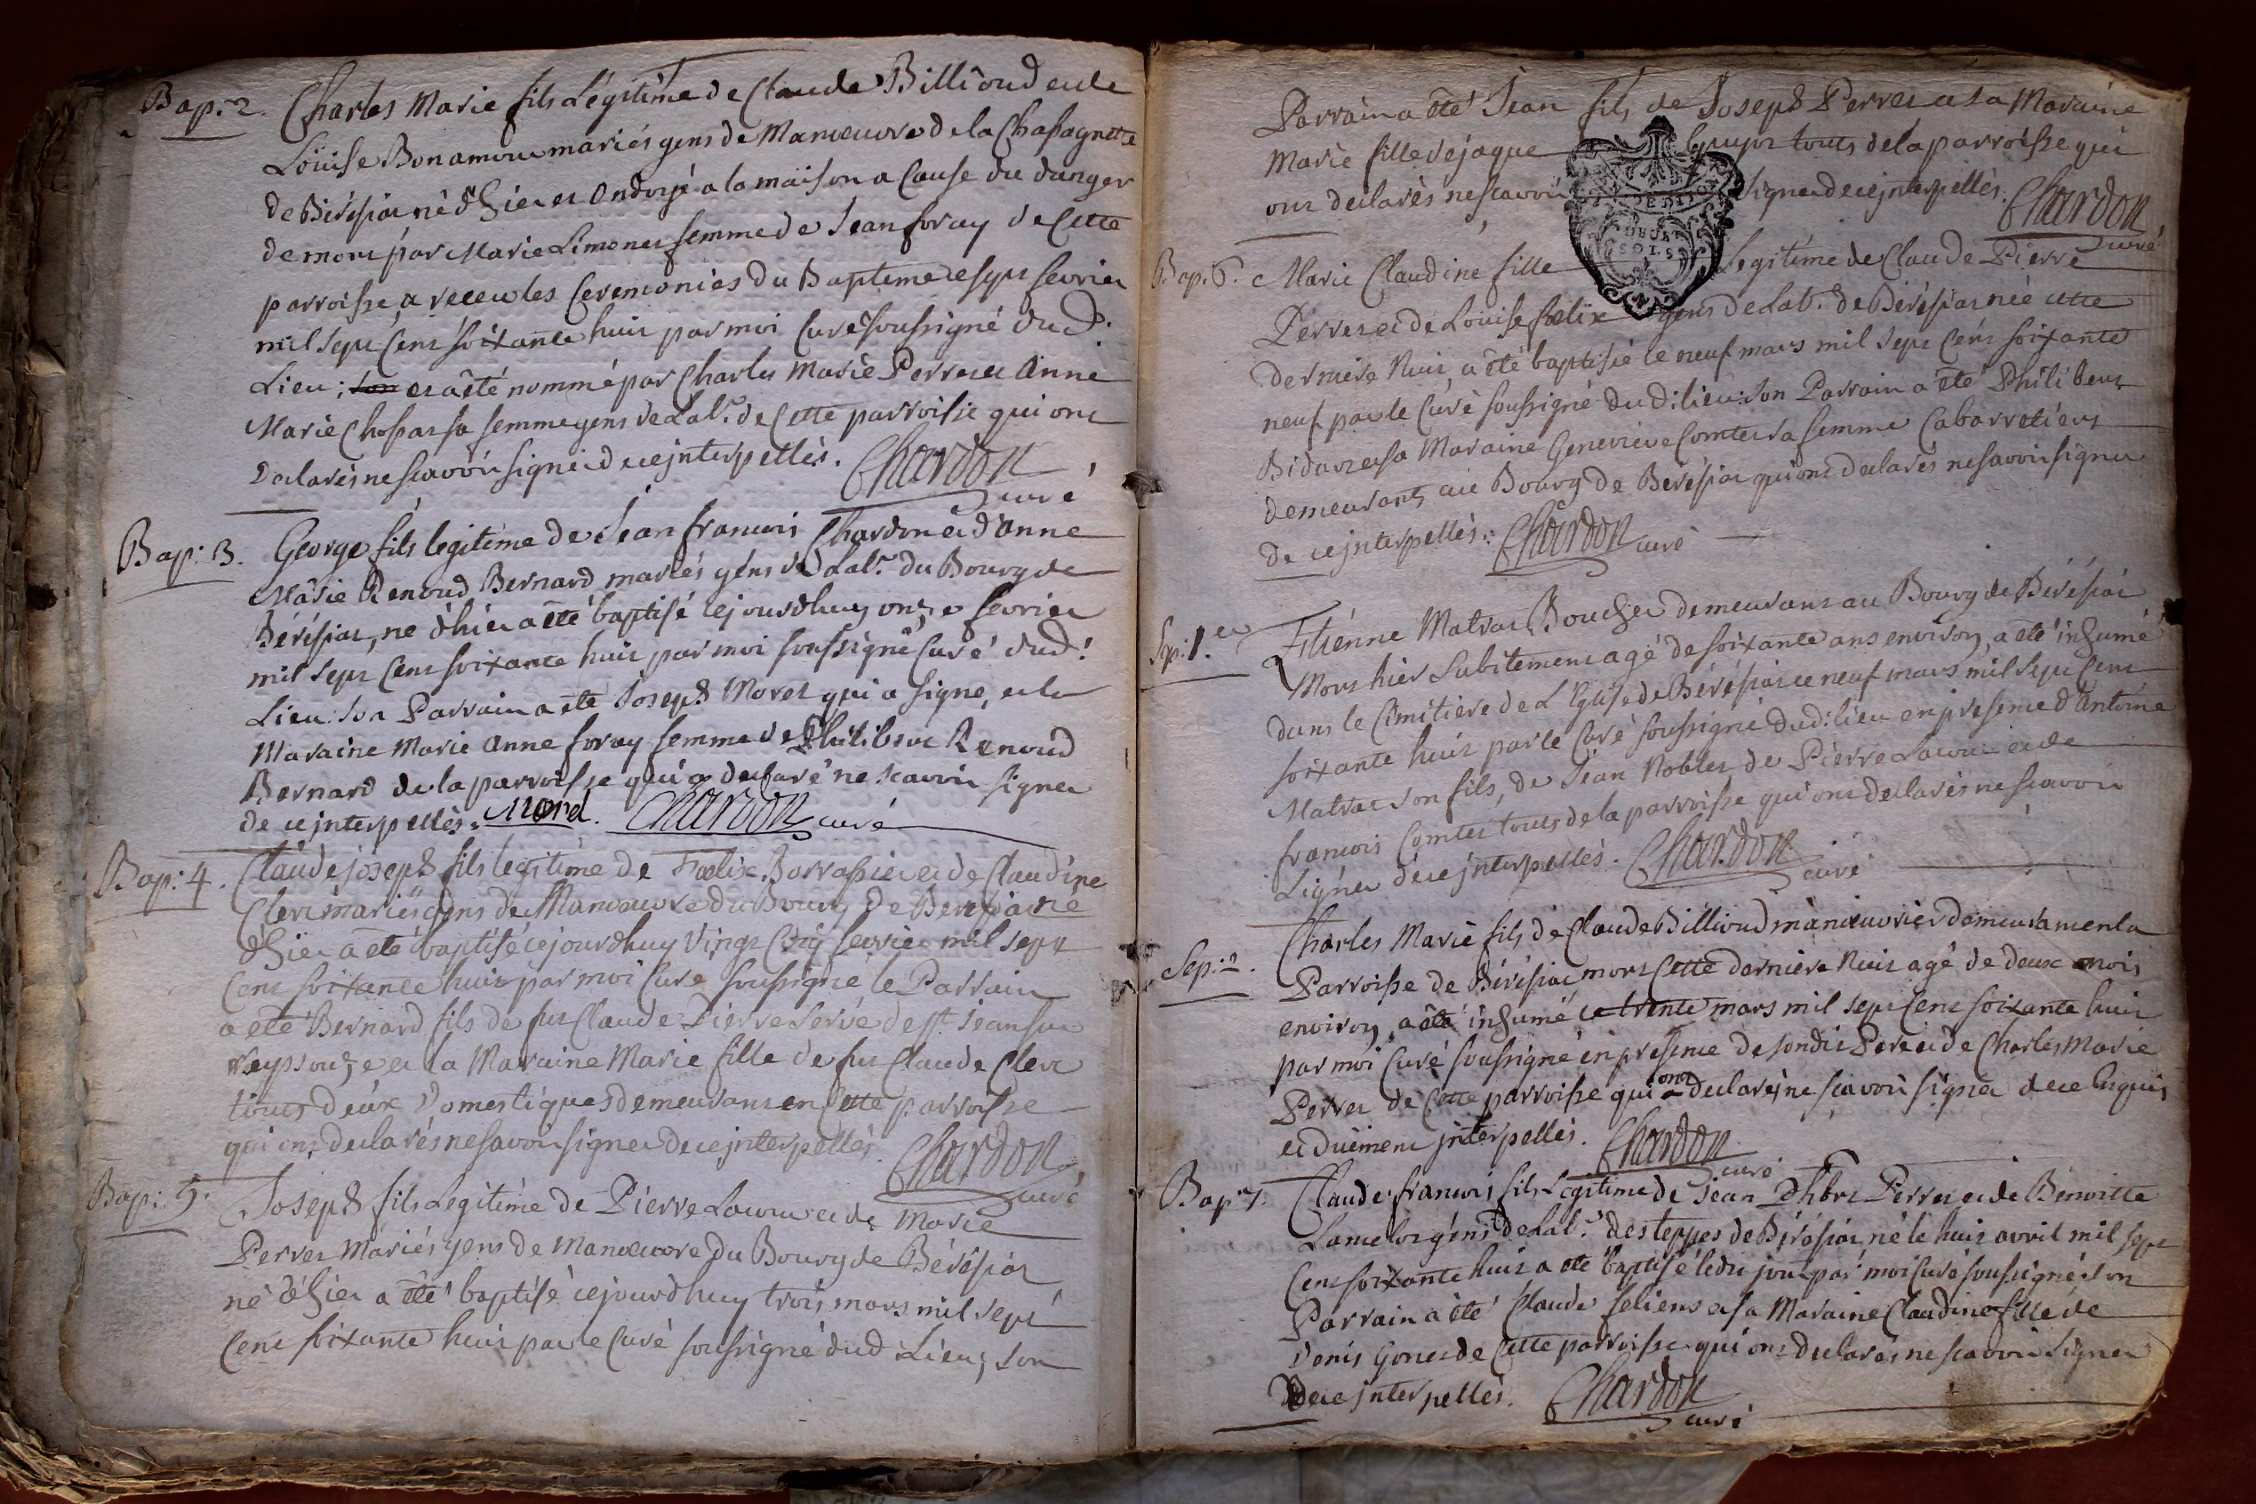 Bap: 2. Charles Marie fils Légitime de Claude Billioud et de
Loüise Bonamour mariés gens de Manœuvre de la Chassagnette
de Bérésiat né d'hier et Ondoyé a la maison a Cause du danger
de mort par Marie Limonet femme de Jean foray de Cette
parroisse, a receu les Ceremonies du Bapteme le sept fevrier
mil sept Cent soixante huit par moi Curé soussigné dud:
Lieu; son et a été nommé par Charles Marie Perret et Anne
Marie Chossat sa femme gens de Labr. de Cette parroisse qui ont
declarés ne scavoir signer de ce jnterpellés. Chardon
curé
Bap: 3. George fils legitime de Jean francois Chardon et d'anne
Marie Renoud Bernard mariés gens de Labr. du Bourg de
Bérésiat, né d'hier a été baptisé cejourdhuy onze fevrier
mil sept Cent soixante huit par moi soussigné Curé dud:
Lieu: son Parrain a été Joseph Morel qui a signé, et la
Maraine Marie Anne foray femme de Philibert Renoud
Bernard de la parroisse qui a declaré ne scavoir signer
de ce jnterpellés. Morel. Chardon curé
Bap: 4. Claude joseph fils legitime de Fœlix Borrassier et de Claudine
Clerc mariés gens de Manœuvre du Bourg de Beresia né
d'hier a été baptisé cejourdhuy vingt Cinq fevrier mil sept
Cent soixante huit par moi Curé soussigné le Parrain
a été Bernard fils de fut Claude Pierre Servé de st. Jean sur
reyssouze et la Maraine Marie fille de fut Claude Clerc
touts deux Domestiques demeurant en Cette parroisse
qui ont declarés ne savoir signer de ce jnterpellés. Chardon
curé
Bap: 5. Joseph fils Legitime de Pierre Lacour et de Marie
Perret Mariés gens de Manœuvre du Bourg de Bérésiat
né d'hier a été baptisé cejourdhuy trois mars mil sept
Cent soixante huit par le Curé soussigné dud: Lieu; son
Parrain a été Jean fils de Joseph Perret et sa Maraine
Marie fille de jaque Guyot touts de la parroisse qui
ont declarés ne scavoir signer de ce jnterpellés. Chardon
curé
Bap: 6. Marie Claudine fille Legitime de Claude Pierre
Perret et de Loüise fœlix gens de Lab. de Bérésiat née cette
derniere Nuit, a été baptisée le neuf mars mil sept Cent soixante
neuf par le Curé soussigné dud: lieu: son Parrain a été Philibert
Bidard et sa Maraine Genevieve Comtet sa femme Cabarretiers
demeurants au Bourg de Bérésiat qui ont declarés ne savoir signer
de ce jnterpellés: Chardon curé
Sep: 1.er Etiénne Matrat Boucher demeurant au Bourg de Bérésiat
Mort hier subitement agé de soixante ans environ, a été inhumé
dans le Cimitiere de L'Eglise de Bérésiat ce neuf mars mil sept Cent
soixante huit par le Curé soussigné dud: lieu en presence d'Antoine
Matrat son fils, de Jean Noblet de Pierre Lacour et de
francois Comtet touts de la parroisse qui ont declarés ne scavoir
signer de ce jnterpellés. Chardon curé
Sep: 2. Charles Marie fils de Claude Billioud manœuvrier demeurant en la
Parroisse de Bérésiat mort Cette derniere Nuit agé de deux mois
environ, a été inhumé le trente mars mil sept Cent soixante huit
par moi Curé soussigné en presence de sondit Pere et de Charles Marie
Perret de Cette parroisse qui ont declarés ne scavoir signer de ce Enquis
et duëment jnterpellés. Chardon
curé
Bap: 7. Claude francois fils Legitime de Jean Phibrt Perret et de Benoitte
Lamelot gens de Labr. des teppes de Bérésiat né le huit avril mil sept
Cent soixante huit a été baptisé ledit jour par moi Curé soussigné son
Parrain a été Claude feliens et sa Maraine Claudine fille de
Denis Gonet de Cette parroisse qui ont declarés ne scavoir signer
de ce jnterpellés. Chardon
curé